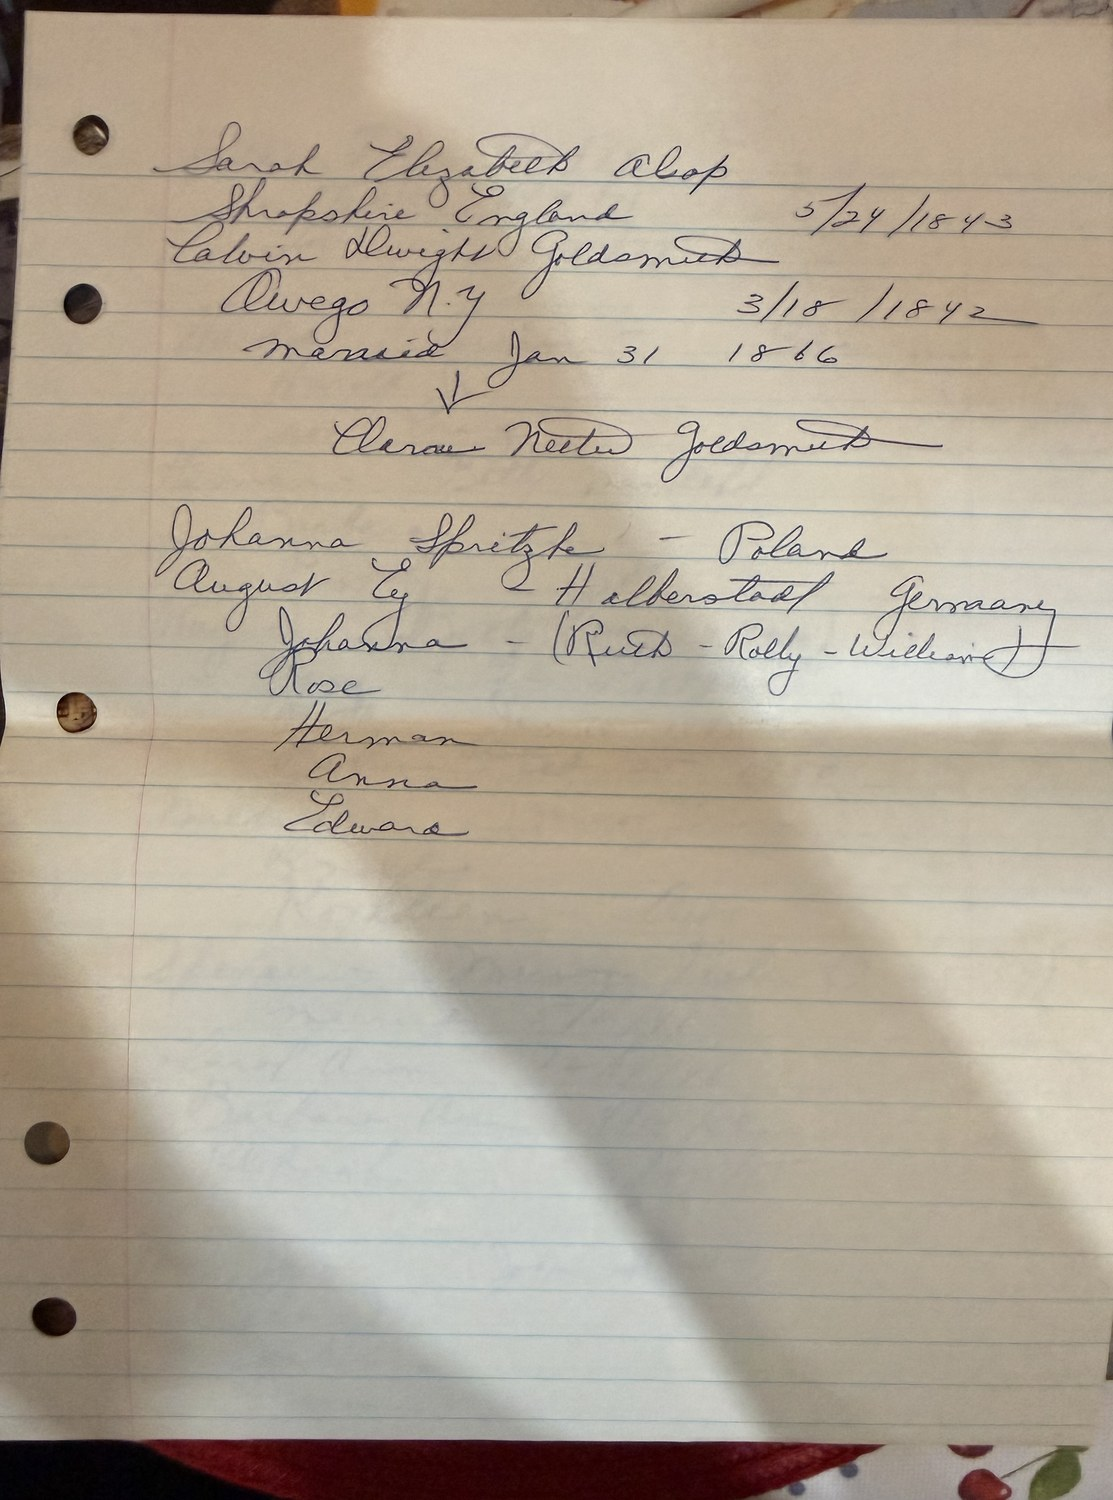 Sarah Elizabeth Alsop
Shropshire England 5/24/1843
Calvin Dwight Goldsmith
Owego N.Y 3/18/1842
married Jan 31 1866
Goldsmith
Johanna Spritzke - Poland
August Ey - Halberstadt Germany
Johanna - (Ruth - Rolly - William)
Rose
Herman
Anna
Edward